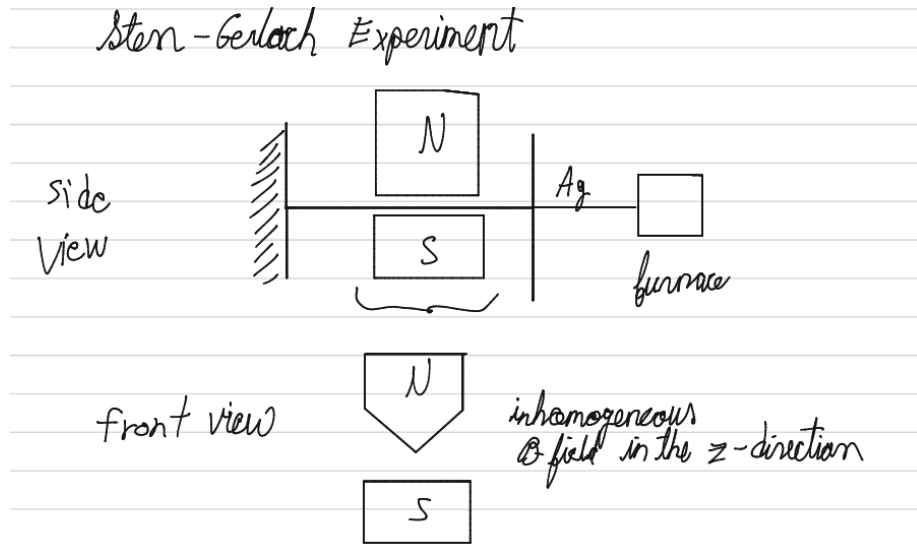 Stern-Gerlach Experiment
N
Ag
side
view
S
furnace
N
front view
inhomogeneous
B field in the z-direction
S